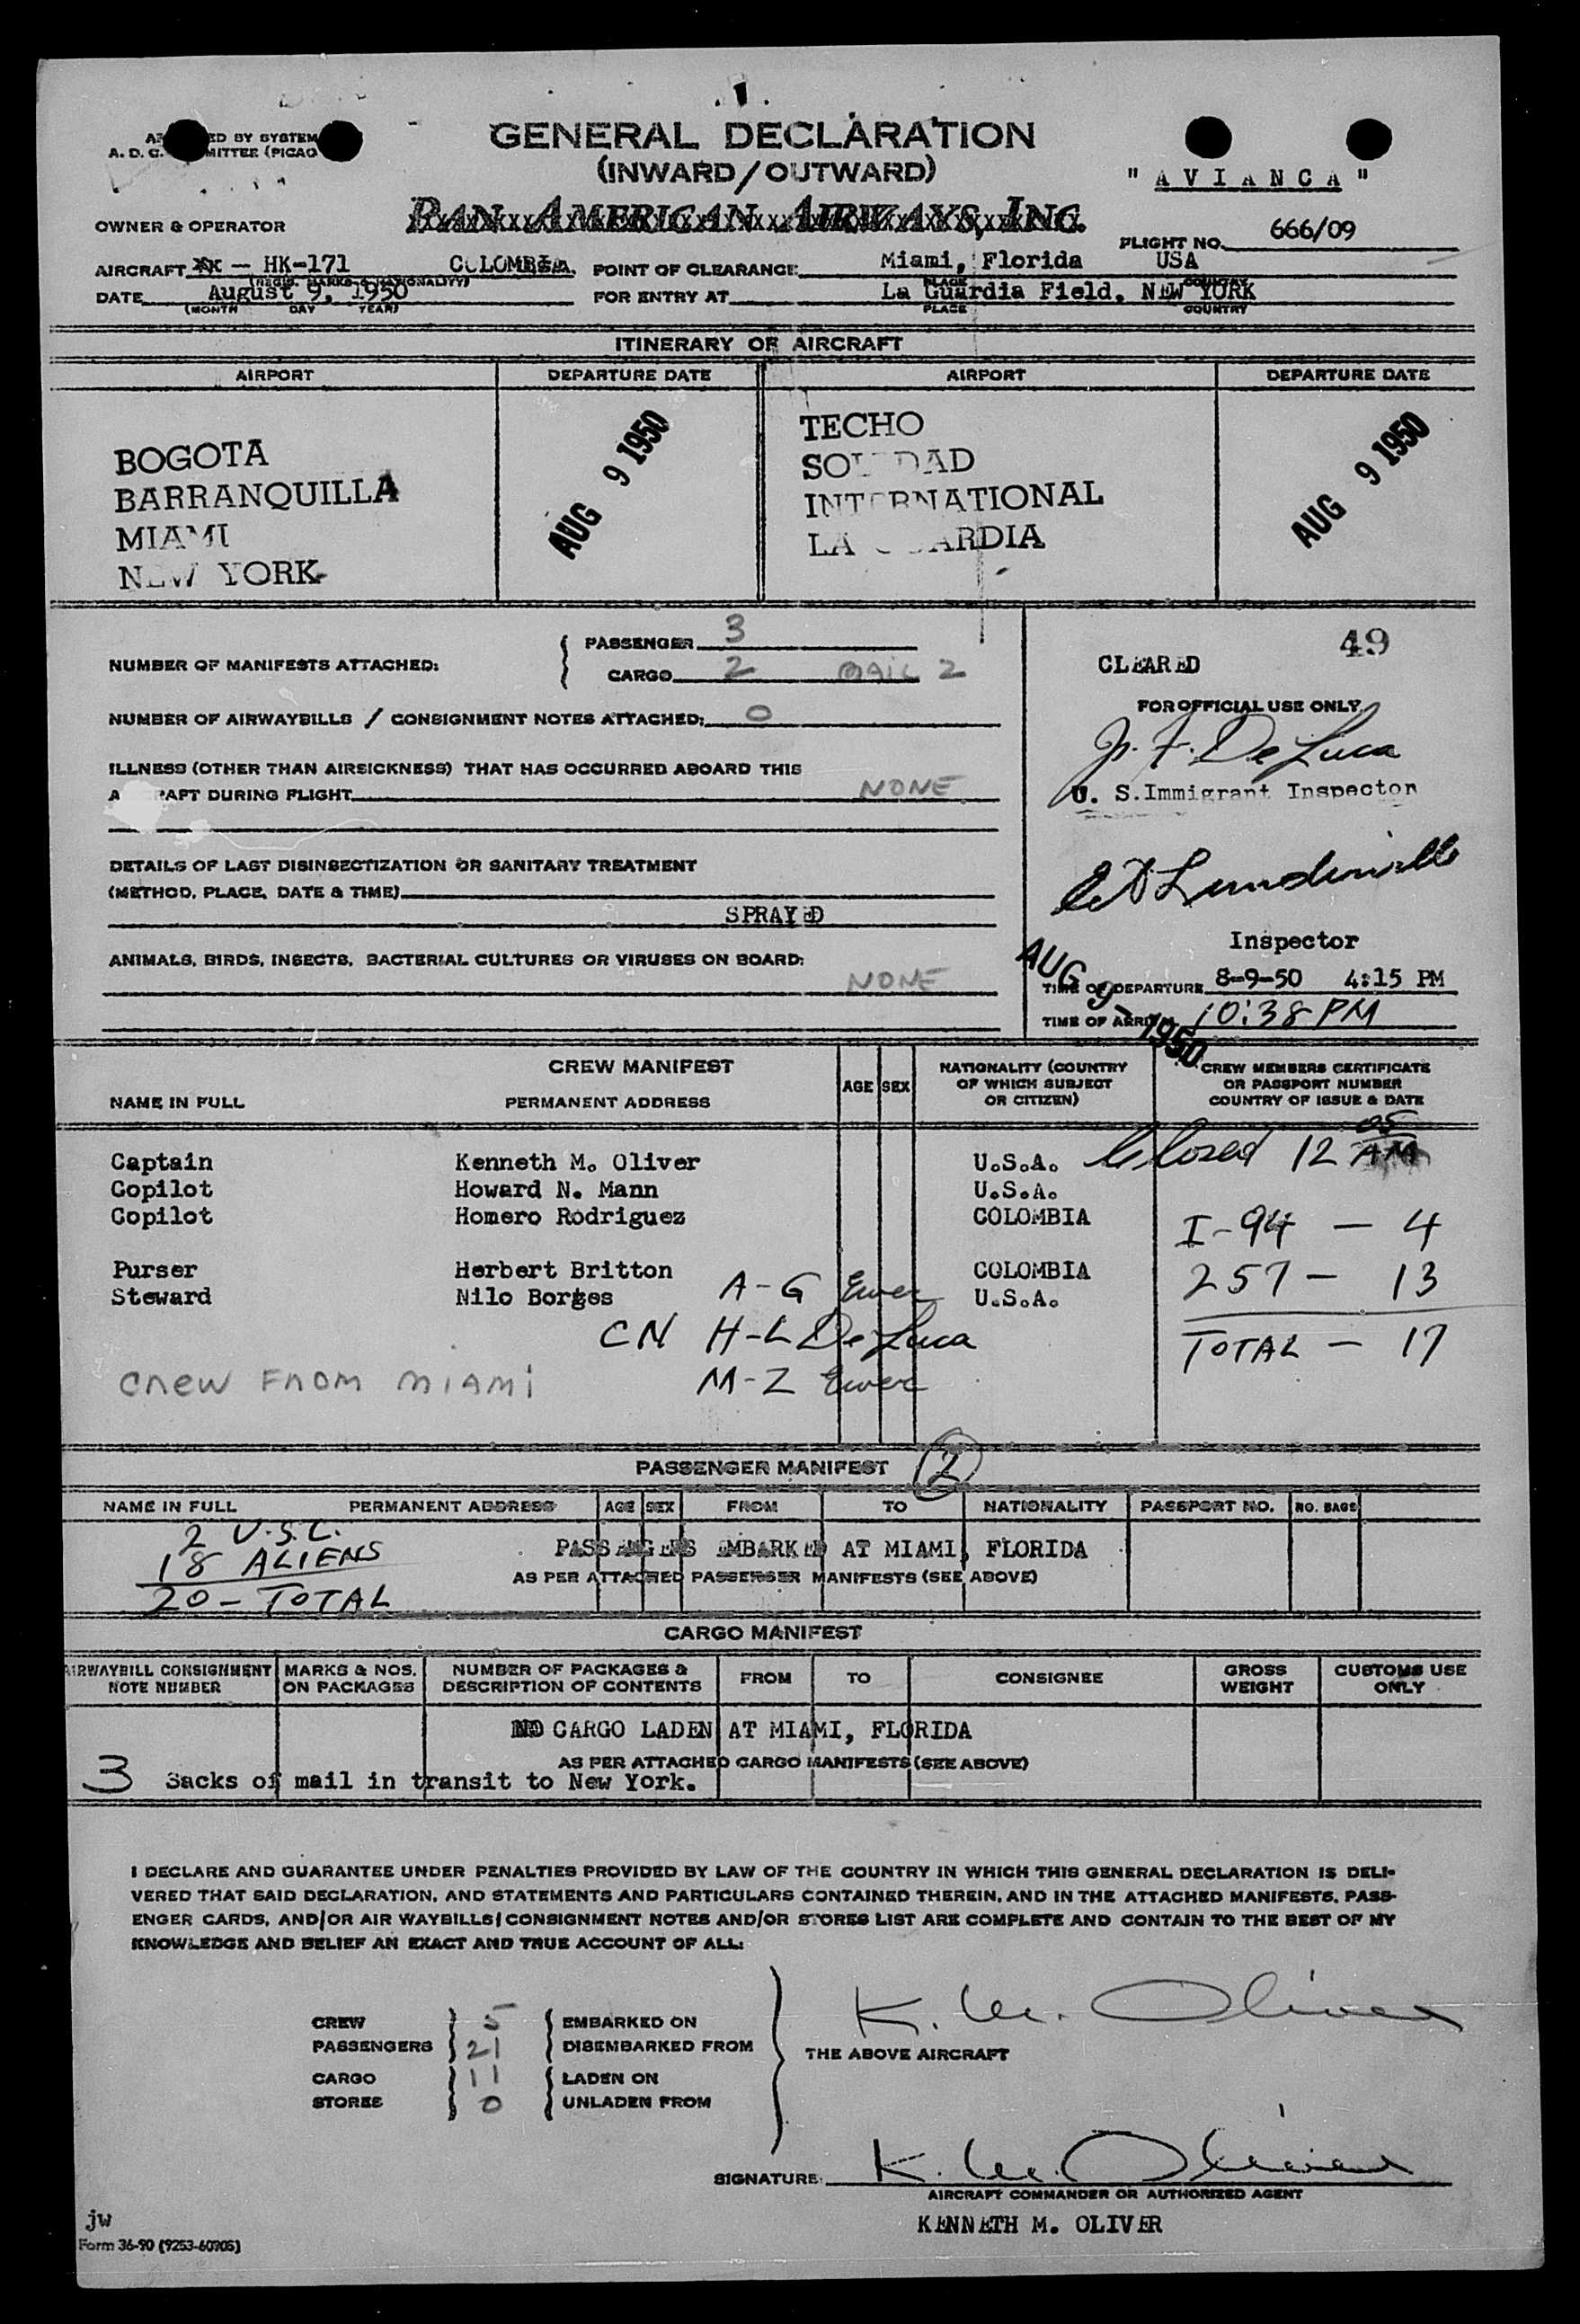 GENERAL DECLARATION
(INWARD/OUTWARD)
"AVIANCA"
ED BY SYSTEM
A. D. C. MITTEE (PICAO
OWNER & OPERATOR
PAN AMERICAN AIRWAYS, INC.
FLIGHT NO. 666/09
AIRCRAFT — HK-171 COLOMBIA. POINT OF CLEARANCE: Miami, Florida USA
(REGIS. MARKS & NATIONALITY) PLACE COUNTRY
DATE August 9, 1950 FOR ENTRY AT La Guardia Field, NEW YORK
(MONTH DAY YEAR) PLACE COUNTRY
ITINERARY OF AIRCRAFT
AIRPORT DEPARTURE DATE AIRPORT DEPARTURE DATE
BOGOTA
BARRANQUILLA
MIAMI
NEW YORK
AUG 9 1950
TECHO
SOLEDAD
INTERNATIONAL
LA GUARDIA
AUG 9 1950
NUMBER OF MANIFESTS ATTACHED:
PASSENGER 3
CARGO 2 MAIL 2
NUMBER OF AIRWAYBILLS / CONSIGNMENT NOTES ATTACHED: 0
ILLNESS (OTHER THAN AIRSICKNESS) THAT HAS OCCURRED ABOARD THIS
AIRCRAFT DURING FLIGHT NONE
DETAILS OF LAST DISINSECTIZATION OR SANITARY TREATMENT
(METHOD, PLACE, DATE & TIME)
SPRAYED
ANIMALS, BIRDS, INSECTS, BACTERIAL CULTURES OR VIRUSES ON BOARD:
NONE
49
CLEARED
FOR OFFICIAL USE ONLY
J. F. De Luca
U. S.Immigrant Inspector
Inspector
AUG 9 - 1950
TIME OF DEPARTURE 8-9-50 4:15 PM
TIME OF ARRIVAL 10:38 PM
CREW MANIFEST
NAME IN FULL PERMANENT ADDRESS AGE SEX
NATIONALITY (COUNTRY
OF WHICH SUBJECT
OR CITIZEN)
CREW MEMBERS CERTIFICATE
OR PASSPORT NUMBER
COUNTRY OF ISSUE & DATE
Closed 12 05 AM
Captain Kenneth M. Oliver U.S.A.
Copilot Howard N. Mann U.S.A.
Copilot Homero Rodriguez COLOMBIA
I-94 — 4
Purser Herbert Britton COLOMBIA
257 — 13
Steward Nilo Borges U.S.A.
A-G Ewer
CN H-L De Luca
TOTAL — 17
CREW FROM MIAMI
M-Z Ewer
PASSENGER MANIFEST 2
NAME IN FULL PERMANENT ADDRESS AGE SEX FROM TO NATIONALITY PASSPORT NO. NO. BAGS
2 U.S.C.
18 ALIENS
20 - TOTAL
PASSENGERS EMBARKED AT MIAMI, FLORIDA
AS PER ATTACHED PASSENGER MANIFESTS (SEE ABOVE)
CARGO MANIFEST
AIRWAYBILL CONSIGNMENT
NOTE NUMBER
MARKS & NOS.
ON PACKAGES
NUMBER OF PACKAGES &
DESCRIPTION OF CONTENTS
FROM TO CONSIGNEE
GROSS
WEIGHT
CUSTOMS USE
ONLY
NO CARGO LADEN AT MIAMI, FLORIDA
AS PER ATTACHED CARGO MANIFESTS (SEE ABOVE)
3 Sacks of mail in transit to New York.
I DECLARE AND GUARANTEE UNDER PENALTIES PROVIDED BY LAW OF THE COUNTRY IN WHICH THIS GENERAL DECLARATION IS DELI-
VERED THAT SAID DECLARATION, AND STATEMENTS AND PARTICULARS CONTAINED THEREIN, AND IN THE ATTACHED MANIFESTS, PASS-
ENGER CARDS, AND/OR AIR WAYBILLS/CONSIGNMENT NOTES AND/OR STORES LIST ARE COMPLETE AND CONTAIN TO THE BEST OF MY
KNOWLEDGE AND BELIEF AN EXACT AND TRUE ACCOUNT OF ALL:
CREW 5 EMBARKED ON
PASSENGERS 21 DISEMBARKED FROM
CARGO 11 LADEN ON
STORES 0 UNLADEN FROM
K. M. Oliver
THE ABOVE AIRCRAFT
SIGNATURE: K. M. Oliver
AIRCRAFT COMMANDER OR AUTHORIZED AGENT
KENNETH M. OLIVER
jw
Form 36-90 (9253-60905)